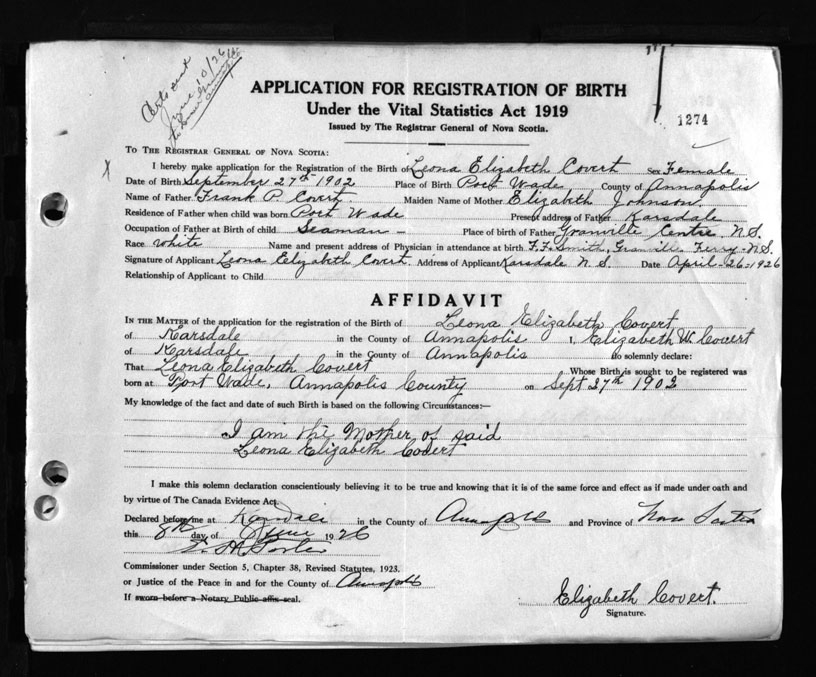 1274
APPLICATION FOR REGISTRATION OF BIRTH
Under the Vital Statistics Act 1919
Issued by The Registrar General of Nova Scotia.
TO THE REGISTRAR GENERAL OF NOVA SCOTIA:
I hereby make application for the Registration of the Birth of Leona Elizabeth Covert Sex Female
Date of Birth September 27th 1902 Place of Birth Port Wade, County of Annapolis
Name of Father Frank P. Covert. Maiden Name of Mother Elizabeth Johnson.
Residence of Father when child was born Port Wade Present address of Father Karsdale
Occupation of Father at Birth of child Seaman - Place of birth of Father Granville Centre N.S.
Race White Name and present address of Physician in attendance at birth F. F. Smith, Granville Ferry-N.S.
Signature of Applicant Leona Elizabeth Covert. Address of Applicant Karsdale N.S. Date April-26-1926
Relationship of Applicant to Child
AFFIDAVIT
IN THE MATTER of the application for the registration of the Birth of Leona Elizabeth Covert
of Karsdale in the County of Annapolis I, Elizabeth W. Covert
of Karsdale in the County of Annapolis do solemnly declare:
That Leona Elizabeth Covert Whose Birth is sought to be registered was
born at Port Wade, Annapolis County on Sept 27th 1902
My knowledge of the fact and date of such Birth is based on the following Circumstances:—
I am the Mother of said
Leona Elizabeth Covert
I make this solemn declaration conscientiously believing it to be true and knowing that it is of the same force and effect as if made under oath and
by virtue of The Canada Evidence Act.
Declared before me at in the County of Annapolis and Province of Nova Scotia
this 8th day of June 1926
Commissioner under Section 5, Chapter 38, Revised Statutes, 1923.
or Justice of the Peace in and for the County of Annapolis
If sworn before a Notary Public affix seal.
Elizabeth Covert.
Signature.